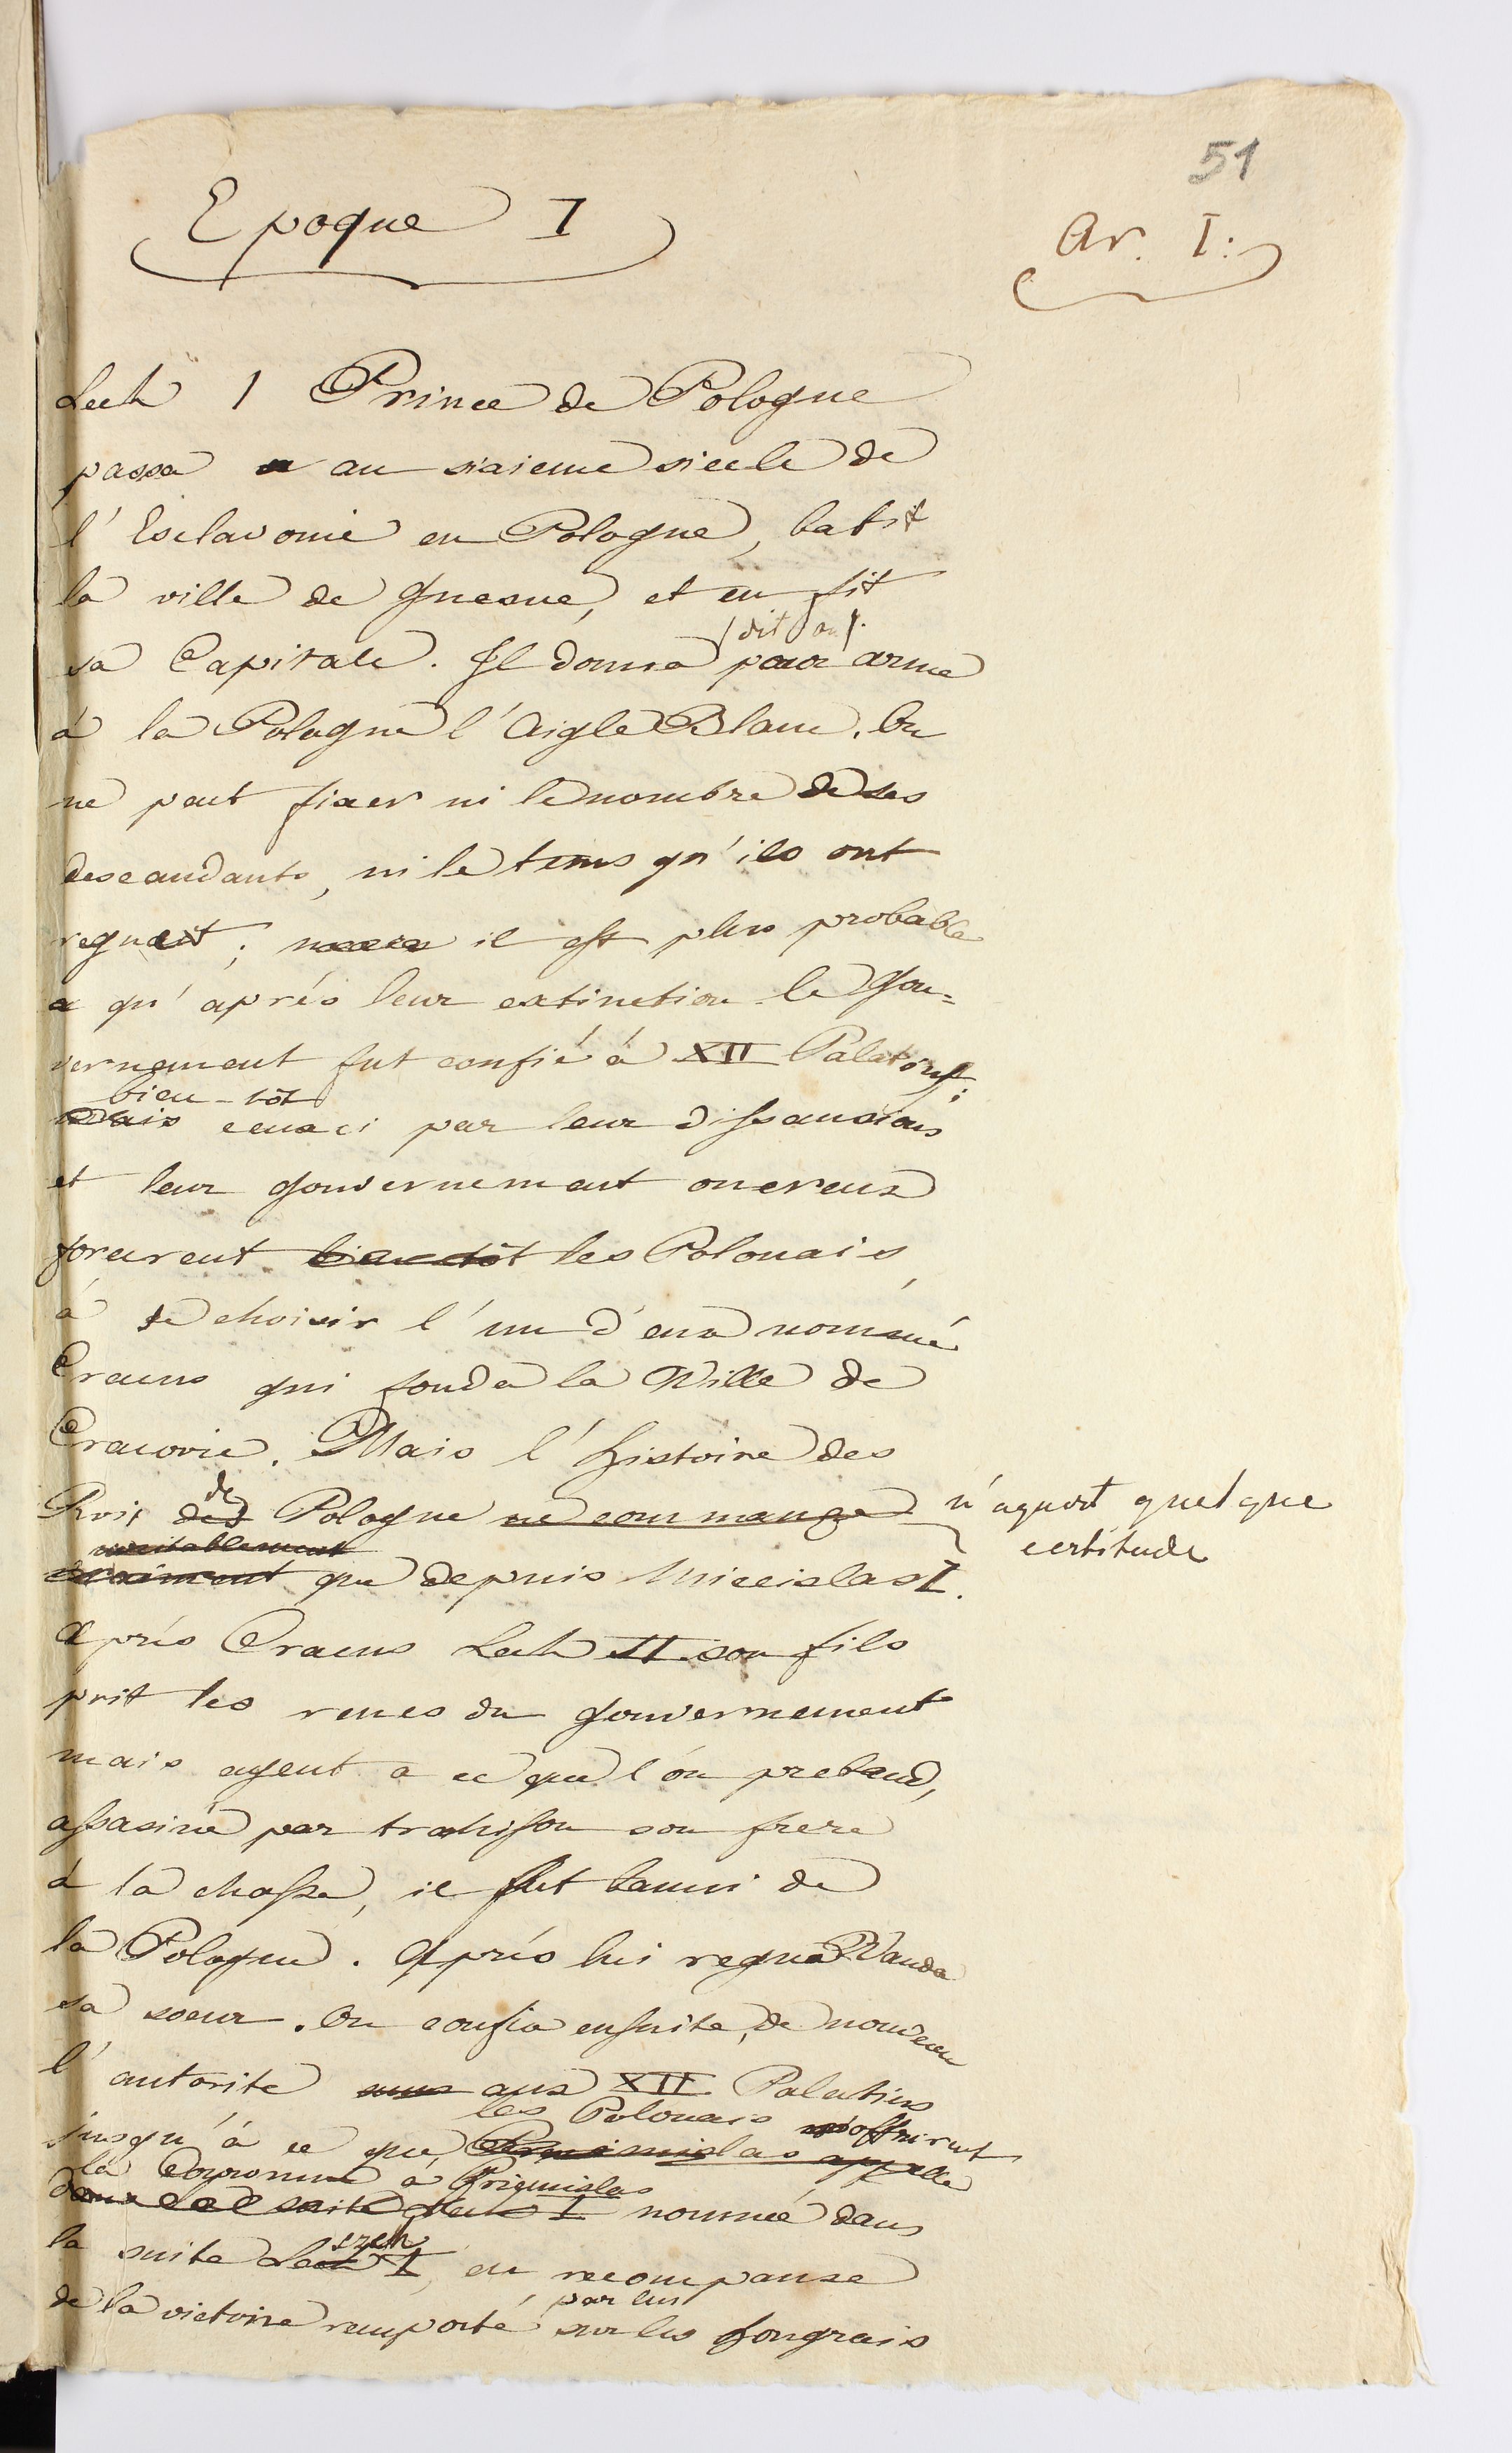 51
Epoque I
Ar. I:
Lech I Prince de Pologne
passa au sixieme siecle de
l'Esclavonie en Pologne, batit
la ville de Gnesne, et en fit
(dit on).
sa Capitale. Il donna pour arme
à la Pologne l'Aigle Blanc. On
ne peut fixer ni le nombre de ses
descandants, ni le tems qu'ils ont
regnait; mais il est plus probable
qu'aprés leur extinction le Gou=
vernement fut confié à XII Palatins;
bien-tôt
mais ceux ci par leur dissansions
et leur gouvernement onereux
forcerent bientôt les Polonais,
à se choisir l'un d'eux nommé
Cracus qui fonda la Ville de
Cracovie. Mais l'histoire des
de
Rois des Pologne ne commance n'aquert quelque
certitude
veritablement
vraiment que depuis Miecislas I.
Aprés Cracus Lech II son fils
prit les renes du gouvernement
mais ayent a ce que l'on pretend,
assasiné par trahison son frere
à la chasse, il fut banni de
la Pologne. Aprés lui regna Wanda
sa soeur. On confia ensuite, de nouveau
l'autorite aux XII Palatins
les Polonais offrirent
jusqu'à ce que Priemislas appelle
la Couronne à Priemislas
dans la suite I nommé dans
szek
la suite Lech I, en recompanse
par lui
de la victoire remporté sur les hongrais